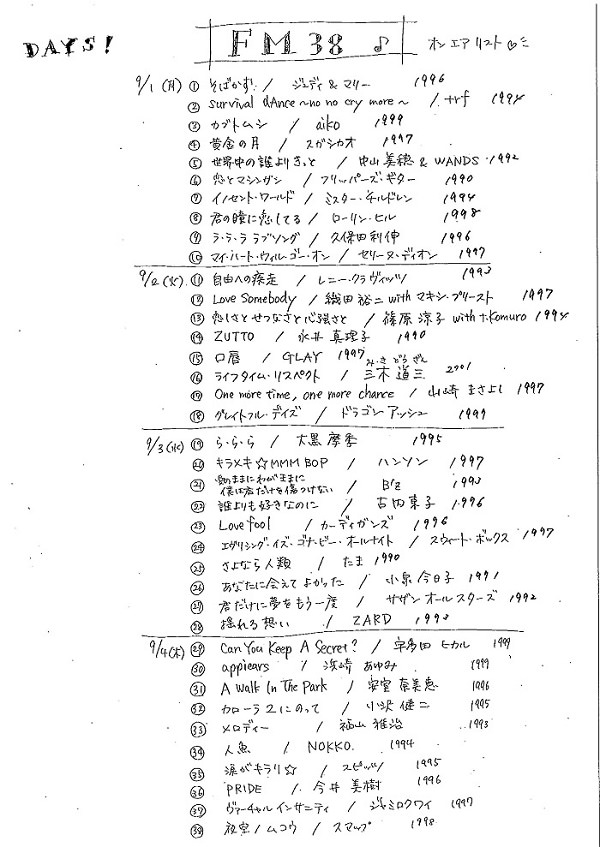 DAYS! FM 38 ♪ オンエアリスト♡
9/1 (月) ① そばかす / ジュディ&マリー 1996
② survival dAnce ~no no cry more~ / trf 1994
③ カブトムシ / aiko 1999
④ 黄金の月 / スガシカオ 1997
⑤ 世界中の誰よりきっと / 中山美穂 & WANDS 1992
⑥ 恋とマシンガン / フリッパーズ・ギター 1990
⑦ イノセント・ワールド / ミスター・チルドレン 1994
⑧ 君の瞳に恋してる / ローリン・ヒル 1998
⑨ ラ・ラ・ラ ラブソング / 久保田利伸 1996
⑩ マイ・ハート・ウィル・ゴー・オン / セリーヌ・ディオン 1997
9/2 (火) ⑪ 自由への疾走 / レニー・クラヴィッツ 1993
⑫ Love Somebody / 織田裕二 with マキシ・プリースト 1997
⑬ 恋しさとせつなさと心強さと / 篠原涼子 with t.Komuro 1994
⑭ ZUTTO / 永井真理子 1990
⑮ 口唇 / GLAY 1997
⑯ ライフタイム・リスペクト / 三木道三 みきどうざん 2001
⑰ One more time, one more chance / 山崎まさよし 1997
⑱ グレイトフル・デイズ / ドラゴンアッシュ 1999
9/3 (水) ⑲ ら・ら・ら / 大黒摩季 1995
⑳ キラメキ☆MMM BOP / ハンソン 1997
㉑ 愛のままにわがままに 僕は君だけを傷つけない / B'z 1993
㉒ 誰よりも好きなのに / 古内東子 1996
㉓ Lovefool / カーディガンズ 1996
㉔ エヴリシング・イズ・ゴナ・ビー・オールナイト / スウィート・ボックス 1997
㉕ さよなら人類 / たま 1990
㉖ あなたに会えてよかった / 小泉今日子 1991
㉗ 君だけに夢をもう一度 / サザンオールスターズ 1992
㉘ 揺れる想い / ZARD 1993
9/4 (木) ㉙ Can You Keep A Secret? / 宇多田ヒカル 1999
㉚ appears / 浜崎あゆみ 1999
㉛ A Walk In The Park / 安室奈美恵 1996
㉜ カローラ2にのって / 小沢健二 1995
㉝ メロディー / 福山雅治 1993
㉞ 人魚 / NOKKO. 1994
㉟ 涙がキラリ☆ / スピッツ 1995
㊱ PRIDE / 今井美樹 1996
㊲ ヴァーチャルインサニティ / ジャミロクワイ 1997
㊳ 夜空ノムコウ / スマップ 1998